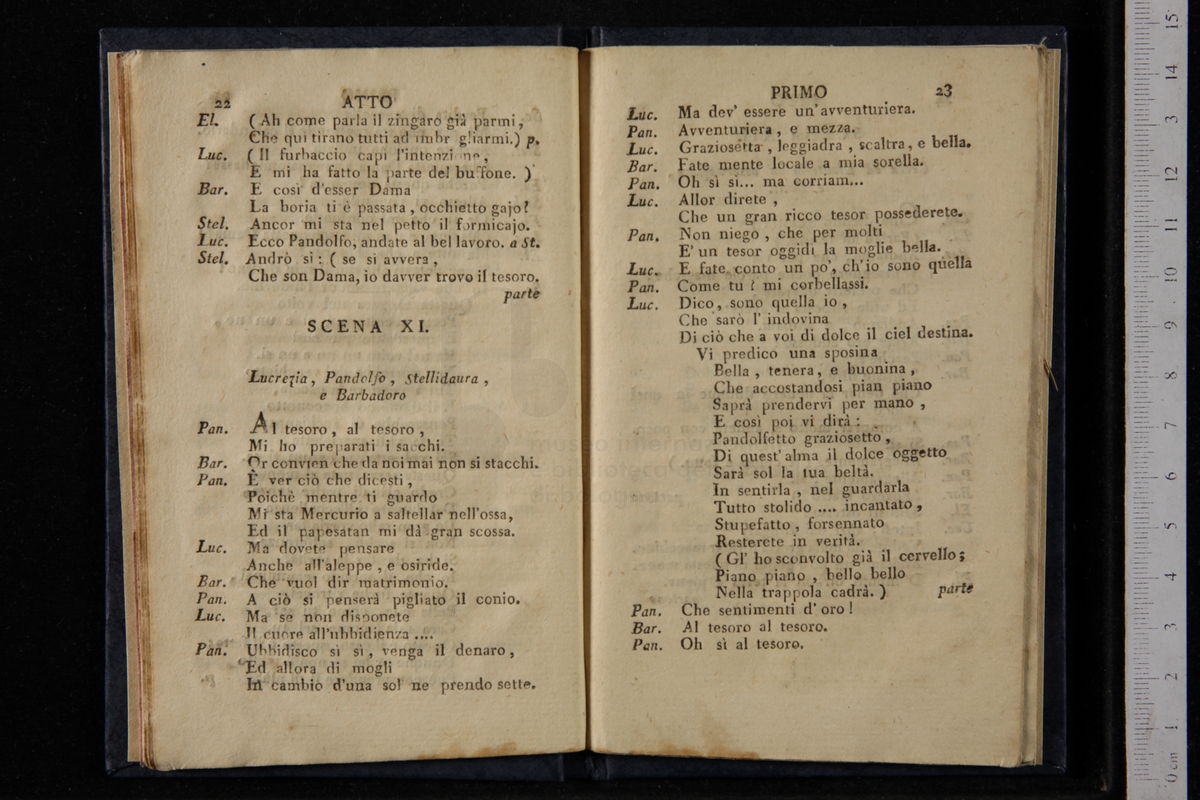 22 ATTO
El. (Ah come parla il zingaro già parmi,
Che qui tirano tutti ad imbr gliarmi.) p.
Luc. (Il furbaccio capì l'intenzi ne,
E mi ha fatto la parte del buffone. )
Bar. E così d'esser Dama
La boria ti è passata, occhietto gajo?
Stel. Ancor mi sta nel petto il formicajo.
Luc. Ecco Pandolfo, andate al bel lavoro. a St.
Stel. Andrò sì: ( se si avvera,
Che son Dama, io davver trovo il tesoro.
parte
SCENA XI.
Lucrezia, Pandolfo, Stellidaura,
e Barbadoro
Pan. Al tesoro, al tesoro,
Mi ho preparati i sacchi.
Bar. Or convien che da noi mai non si stacchi.
Pan. È ver ciò che dicesti,
Poichè mentre ti guardo
Mi sta Mercurio a saltellar nell'ossa,
Ed il papesatan mi dà gran scossa.
Luc. Ma dovete pensare
Anche all'aleppe, e osiride.
Bar. Che vuol dir matrimonio.
Pan. A ciò si penserà pigliato il conio.
Luc. Ma se non disponete
Il cuore all'ubbidienza ....
Pan. Ubbidisco sì sì, venga il denaro,
Ed allora di mogli
In cambio d'una sol ne prendo sette.
PRIMO 23
Luc. Ma dev' essere un'avventuriera.
Pan. Avventuriera, e mezza.
Luc. Graziosetta, leggiadra, scaltra, e bella.
Bar. Fate mente locale a mia sorella.
Pan. Oh sì sì... ma corriam...
Luc. Allor direte,
Che un gran ricco tesor possederete.
Pan. Non niego, che per molti
E' un tesor oggidì la moglie bella.
Luc. E fate conto un po', ch'io sono quella
Pan. Come tu? mi corbellassi.
Luc. Dico, sono quella io,
Che sarò l' indovina
Di ciò che a voi di dolce il ciel destina.
Vi predico una sposina
Bella, tenera, e buonina,
Che accostandosi pian piano
Saprà prendervi per mano,
E così poi vi dirà:
Pandolfetto graziosetto,
Di quest' alma il dolce oggetto
Sarà sol la tua beltà.
In sentirla, nel guardarla
Tutto stolido .... incantato,
Stupefatto, forsennato
Resterete in verità.
( Gl' ho sconvolto già il cervello;
Piano piano, bello bello
Nella trappola cadrà. ) parte
Pan. Che sentimenti d' oro!
Bar. Al tesoro al tesoro.
Pan. Oh sì al tesoro.